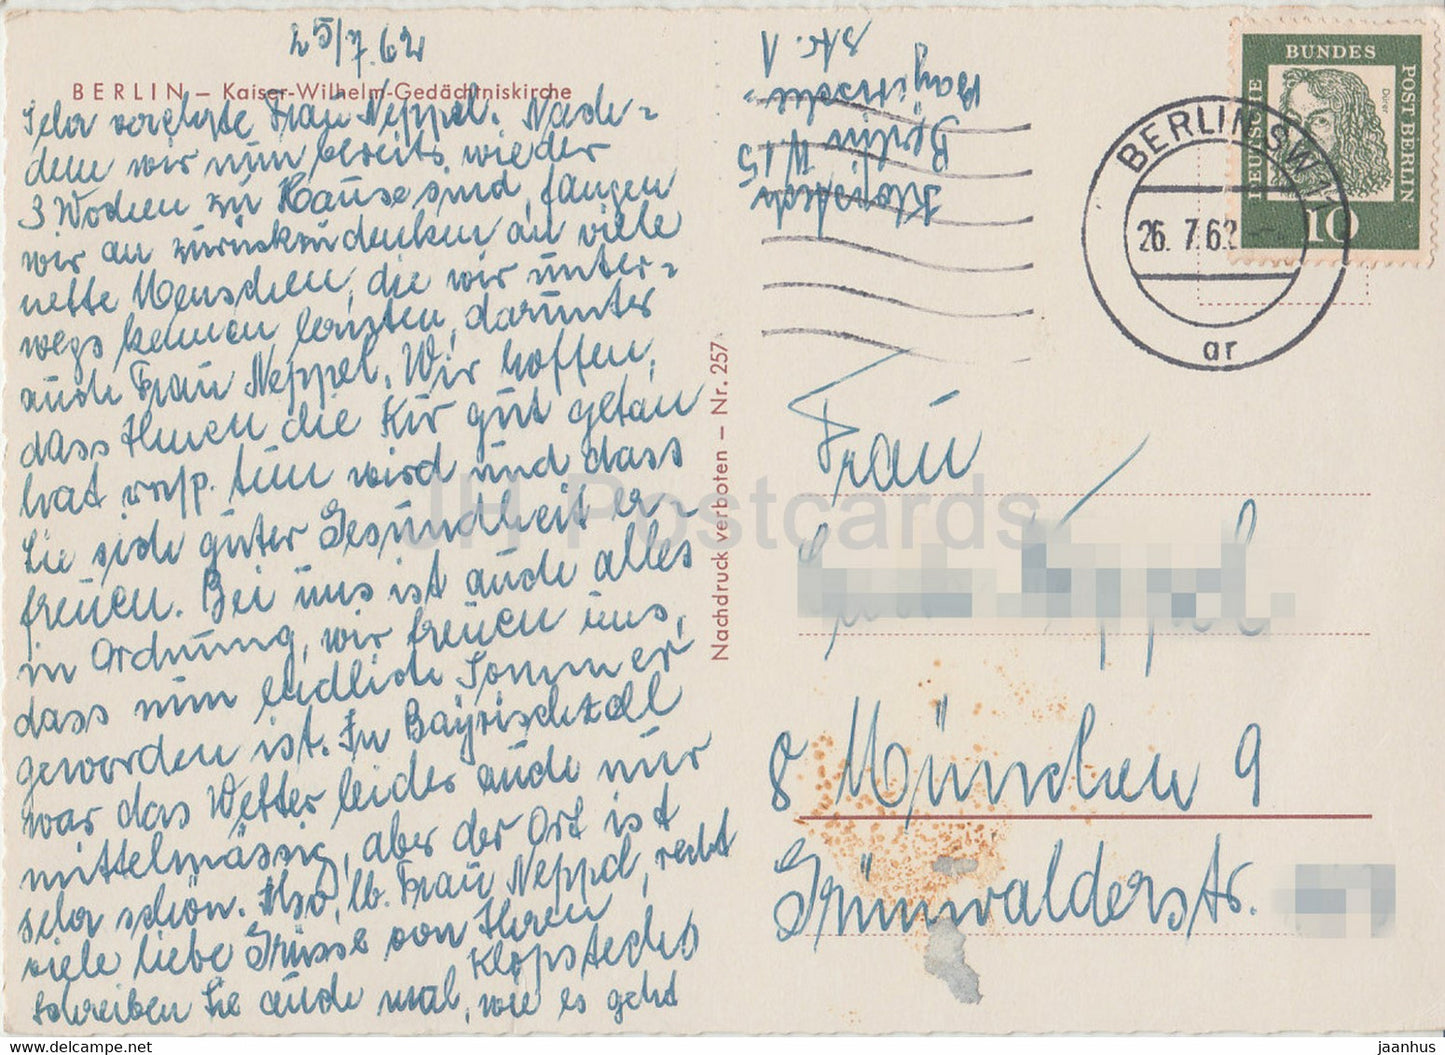 25/7.62
BERLIN – Kaiser-Wilhelm-Gedächtniskirche
Sehr verehrte Frau Neppel. Nach-
dem wir nun bereits wieder
3 Wochen zu Hause sind, fangen
wir an zurückzudenken an viele
nette Menschen, die wir unter-
wegs kennen lernten, darunter
auch Frau Neppel. Wir hoffen,
dass Ihnen die Kur gut getan
hat resp. tun wird und dass
Sie sich guter Gesundheit er-
freuen. Bei uns ist auch alles
in Ordnung, wir freuen uns,
dass nun endlich Sommer
geworden ist. In Bayrischzell
war das Wetter leider auch nur
mittelmässig, aber der Ort ist
sehr schön. Also, lb. Frau Neppel, recht
viele liebe Grüsse von Ihren
Klopstechs
schreiben Sie auch mal, wie es geht
Nachdruck verboten – Nr. 257
Klopstech
Berlin W 15
Bayrische-
str. 1
DEUTSCHE
BUNDES
POST BERLIN
Dürer
10
BERLIN SW 11
26. 7. 62
ar
Frau
Neppel.
8 München 9
Grünwalderstr.
JH Postcards
jaanhus — www.delcampe.net